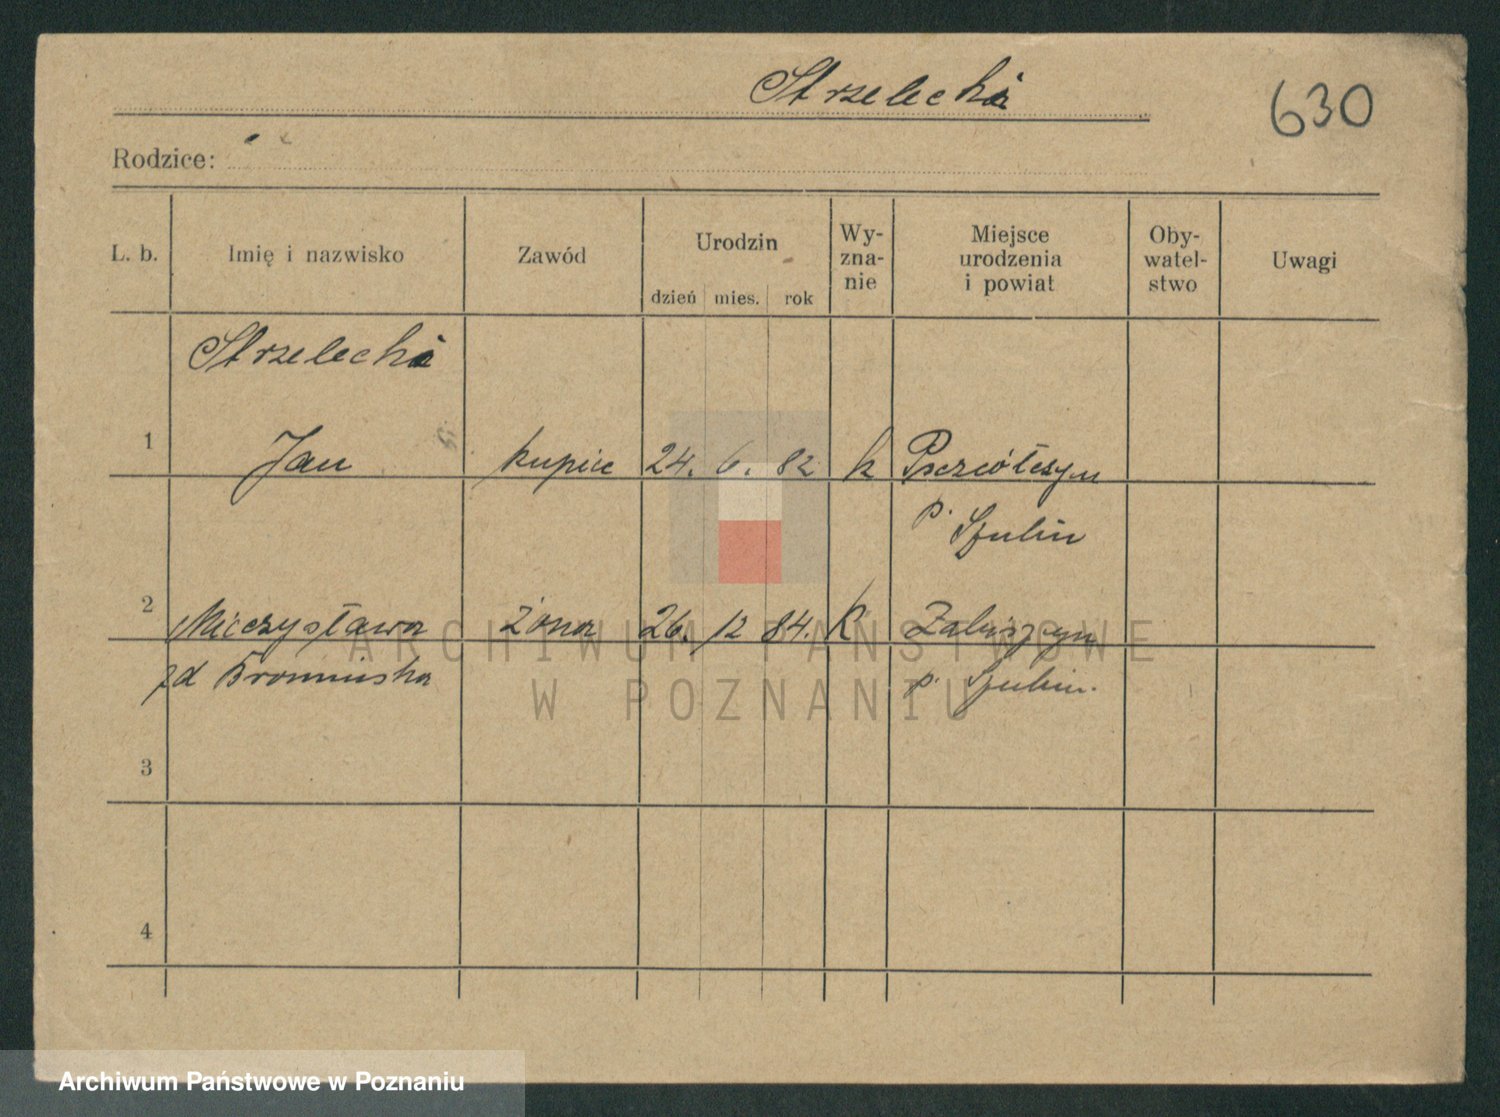 Strzelecki
630
Rodzice:
L. b.
Imię i nazwisko
Zawód
Urodzin
dzień mies. rok
Wy-
zna-
nie
Miejsce
urodzenia
i powiat
Oby-
watel-
stwo
Uwagi
Strzelecki
1 Jan kupiec 24. 6. 82 k
p. Szubin
2 Mieczysława żona 26. 12 84. k
zd Bromińska p. Szubin.
3
4
ARCHIWUM PAŃSTWOWE
W POZNANIU
Archiwum Państwowe w Poznaniu